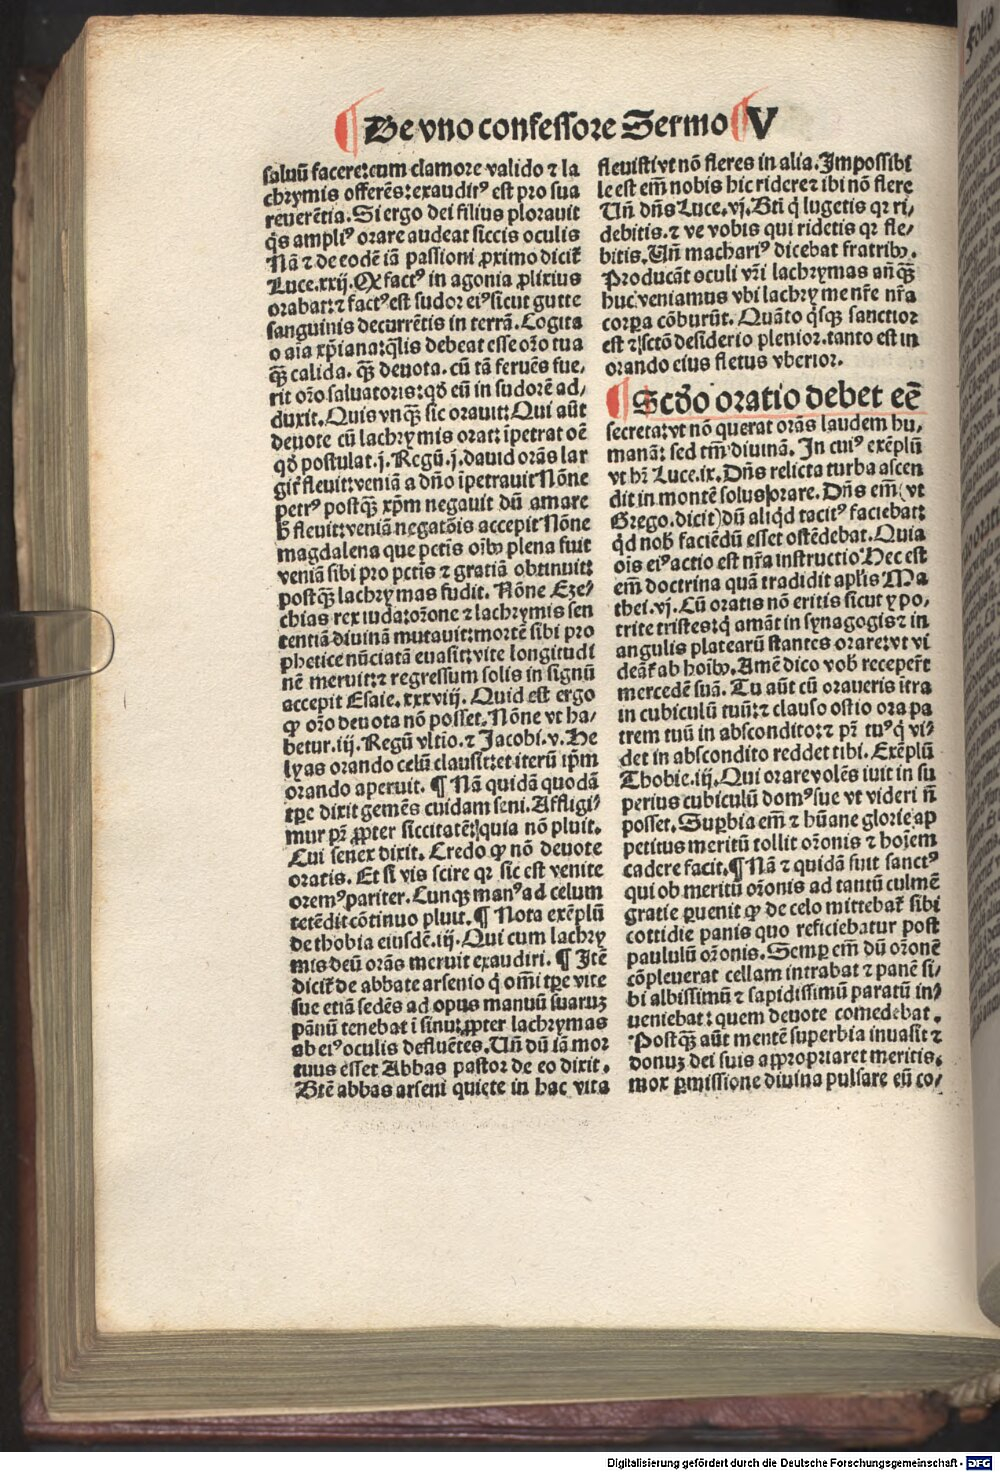 De vno confessore Sermo V
saluū facere: cum clamore valido ⁊ la
chrymis offerēs: exauditꝰ est pro sua
reuerētia. Si ergo dei filius plorauit
q̄s ampliꝰ orare audeat siccis oculis
Nā ⁊ de eodē iā passioni ꝓximo dicit̄
Luce.xxij. Qꝫ factꝰ in agonia ꝓlixius
orabat: ⁊ factꝰ est sudor eiꝰ sicut gutte
sanguinis decurrētis in terrā. Cogita
o aīa xp̄iana: q̄lis debeat esse orō tua
q̄ꝫ calida. q̄ꝫ deuota. cū tā feruēs fue/
rit orō saluatoris: qd̄ eū in sudorē ad/
duxit. Quis vnq̄ꝫ sic orauit: Qui aūt
deuote cū lachrymis orat: īpetrat oē
qd̄ postulat.j. Regū.j. dauid orās lar
git̄ fleuit: veniā a dn̄o īpetrauit Nōne
petrꝰ postq̄ꝫ xp̄m negauit dū amare
h̄ fleuit: veniā negatōis accepit Nōne
magdalena que pctīs oībꝫ plena fuit
veniā sibi pro pctīs ⁊ gratiā obtinuit:
postq̄ꝫ lachrymas fudit. Nōne Eze/
chias rex iuda: orōne ⁊ lachrymis sen
tentiā diuinā mutauit: mortē sibi pro
phetice nūciatā euasit: vite longitudi
nē meruit: ⁊ regressum solis in signū
accepit Esaie.xxxviij. Quid est ergo
ꝙ orō deuota nō posset. Nōne vt ha/
betur.iij. Regū vltio. ⁊ Jacobi.v. He
lyas orando celū clausit: et iterū ip̄m
orando aperuit. ¶ Nā quidā quodā
tꝑe dixit gemēs cuidam seni. Affligi/
mur pr̄ ꝓpter siccitatē: quia nō pluit.
Cui senex dixit. Credo ꝙ nō deuote
oratis. Et si vis scire qꝛ sic est venite
oremꝰ pariter. Cunqꝫ manꝰ ad celum
tetēdit cōtinuo pluit. ¶ Nota exēplū
de thobia eiusdē.iij. Qui cum lachry
mis deū orās meruit exaudiri. ¶ Itē
dicit̄ de abbate arsenio q̄ om̄i tꝑe vite
sue etiā sedēs ad opus manuū suaruꝫ
pānū tenebat ī sinu: ꝓpter lachrymas
ab eiꝰ oculis defluētes. Un̄ dū iā mor
tuus esset Abbas pastor de eo dixit.
Btē abbas arseni quiete in hac vita
fleuisti vt nō fleres in alia. Impossibi
le est em̄ nobis hic ridere ⁊ ibi nō flere
Un̄ dn̄s Luce.vj. Bti q̄ lugetis qꝛ ri/
debitis. ⁊ ve vobis qui ridetis qꝛ fle/
bitis. Un̄ machariꝰ dicebat fratribꝫ.
Producāt oculi vr̄i lachrymas an̄q̄ꝫ
huc veniamus vbi lachryme nr̄e nr̄a
corpa cōburūt. Quāto q̄sqꝫ sanctior
est ⁊ sctō desiderio plenior. tanto est in
orando eius fletus vberior.
¶ Scd̄o oratio debet eē
secreta: vt nō querat orās laudem hu/
manā: sed tm̄ diuinā. In cuiꝰ exēplū
vt hr̄ Luce.ix. Dn̄s relicta turba ascen
dit in montē solus orare. Dn̄s em̄ (vt
Grego. dicit) dū aliqd̄ tacitꝰ faciebat:
qd̄ nob̄ faciēdū esset ostēdebat. Quia
ois eiꝰ actio est nr̄a instructio Hec est
em̄ doctrina quā tradidit aplīs Ma
thei.vj. Cū oratis nō eritis sicut ypo/
trite tristes: q̄ amāt in synagogis ⁊ in
angulis platearū stantes orare: vt vi
deāt̄ ab hoībꝫ. Amē dico vob̄ recepert̄
mercedē suā. Tu aūt cū oraueris ītra
in cubiculū tuū: ⁊ clauso ostio ora pa
trem tuū in abscondito: ⁊ pr̄ tuꝰ q̄ vi/
det in abscondito reddet tibi. Exēplū
Thobie.iij. Qui orare volēs iuit in su
perius cubiculū domꝰ sue vt videri n̄
posset. Supbia em̄ ⁊ hūane glorie ap
petitus meritū tollit orōnis ⁊ hoīem
cadere facit. ¶ Nā ⁊ quidā fuit sanctꝰ
qui ob meritū orōnis ad tantū culmē
gratie ꝑuenit ꝙ de celo mittebat̄ sibi
cottidie panis quo reficiebatur post
paululū orōnis. Semꝑ em̄ dū orōnē
cōpleuerat cellam intrabat ⁊ panē si/
bi albissimū ⁊ sapidissimū paratū in/
ueniebat: quem deuote comedebat.
Postq̄ꝫ aūt mentē superbia inuasit ⁊
donuꝫ dei suis appropriaret meritis.
mox ꝑmissione diuina pulsare eū co/
Folio
Digitalisierung gefördert durch die Deutsche Forschungsgemeinschaft - DFG